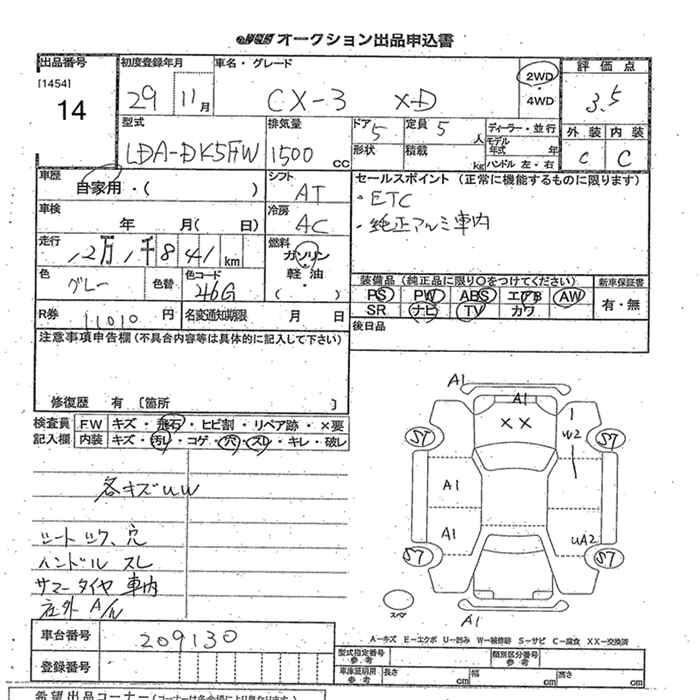 オークション出品申込書
出品番号 初度登録年月 車名・グレード 評価点
[1454]
14
29 11月 CX-3 XD 2WD・4WD 3.5
型式 排気量 ドア 5 定員 5人 ディーラー・並行 外装 内装
LDA-DK5FW 1500cc 形状 積載 kg モデル年式 年 C C
ハンドル 左・右
車歴 自家用・( ) シフト AT セールスポイント (正常に機能するものに限ります)
・ETC
・純正アルミ車内
車検 年 月( 日) 冷房 AC
走行 12万1千841km 燃料 ガソリン・軽油 ( )
色 グレー 色替 色コード 46G
装備品 (純正品に限り○をつけてください) 新車保証書
PS PW ABS エアB AW 有・無
SR ナビ TV カワ
R券 11010円 名変通知期限 月 日 後日品
注意事項申告欄 (不具合内容等は具体的に記入して下さい)
修復歴 有 〔箇所 〕
検査員 F.W キズ・飛石・ヒビ割・リペア跡・×要
記入欄 内装 キズ・汚レ・コゲ・穴・スレ・キレ・破レ
各キズUW
シート ツク、穴
ハンドル スレ
サマータイヤ 車内
社外 A/W
A1
A1
XX
W2
S7 S7
A1
A1
UA2
S7 S7
スペア
A1
A-キズ E-エクボ U-凹み W-補修跡 S-サビ C-腐食 XX-交換済
車台番号 209130
登録番号
型式指定番号 参考 類別区分番号 参考
車庫証明用 参考 長さ cm 幅 cm 高さ cm
希望出品コーナー